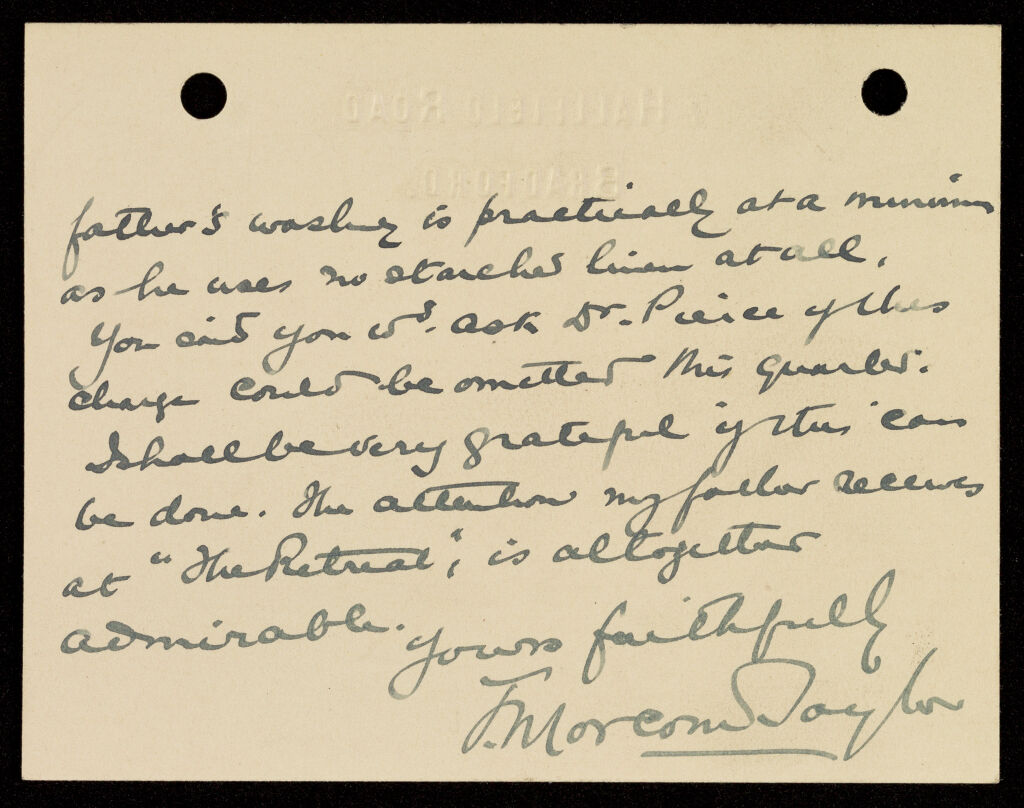 HALLFIELD ROAD
BRADFORD.
father's washing is practically at a minimum
as he uses no starched linen at all.
You said you wd. ask Dr. Pierce if this
charge could be omitted this quarter.
I shall be very grateful if this can
be done. The attention my father receives
at "The Retreat", is altogether
admirable.
Yours faithfully
F. Morcom Taylor